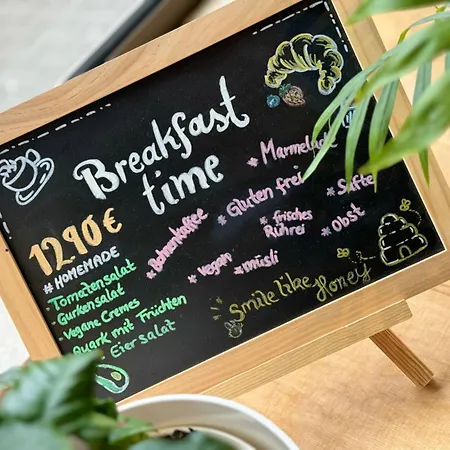 Breakfast
time
12.90 €
# HOMEMADE
- Tomatensalat
- Gurkensalat
- Vegane Cremes
- Quark mit Früchten
Eiersalat
* Marmelade
* Gluten frei
* Säfte
* Bohnenkaffee
* frisches
Rührei
* Obst
* vegan
* müsli
Smile like Honey